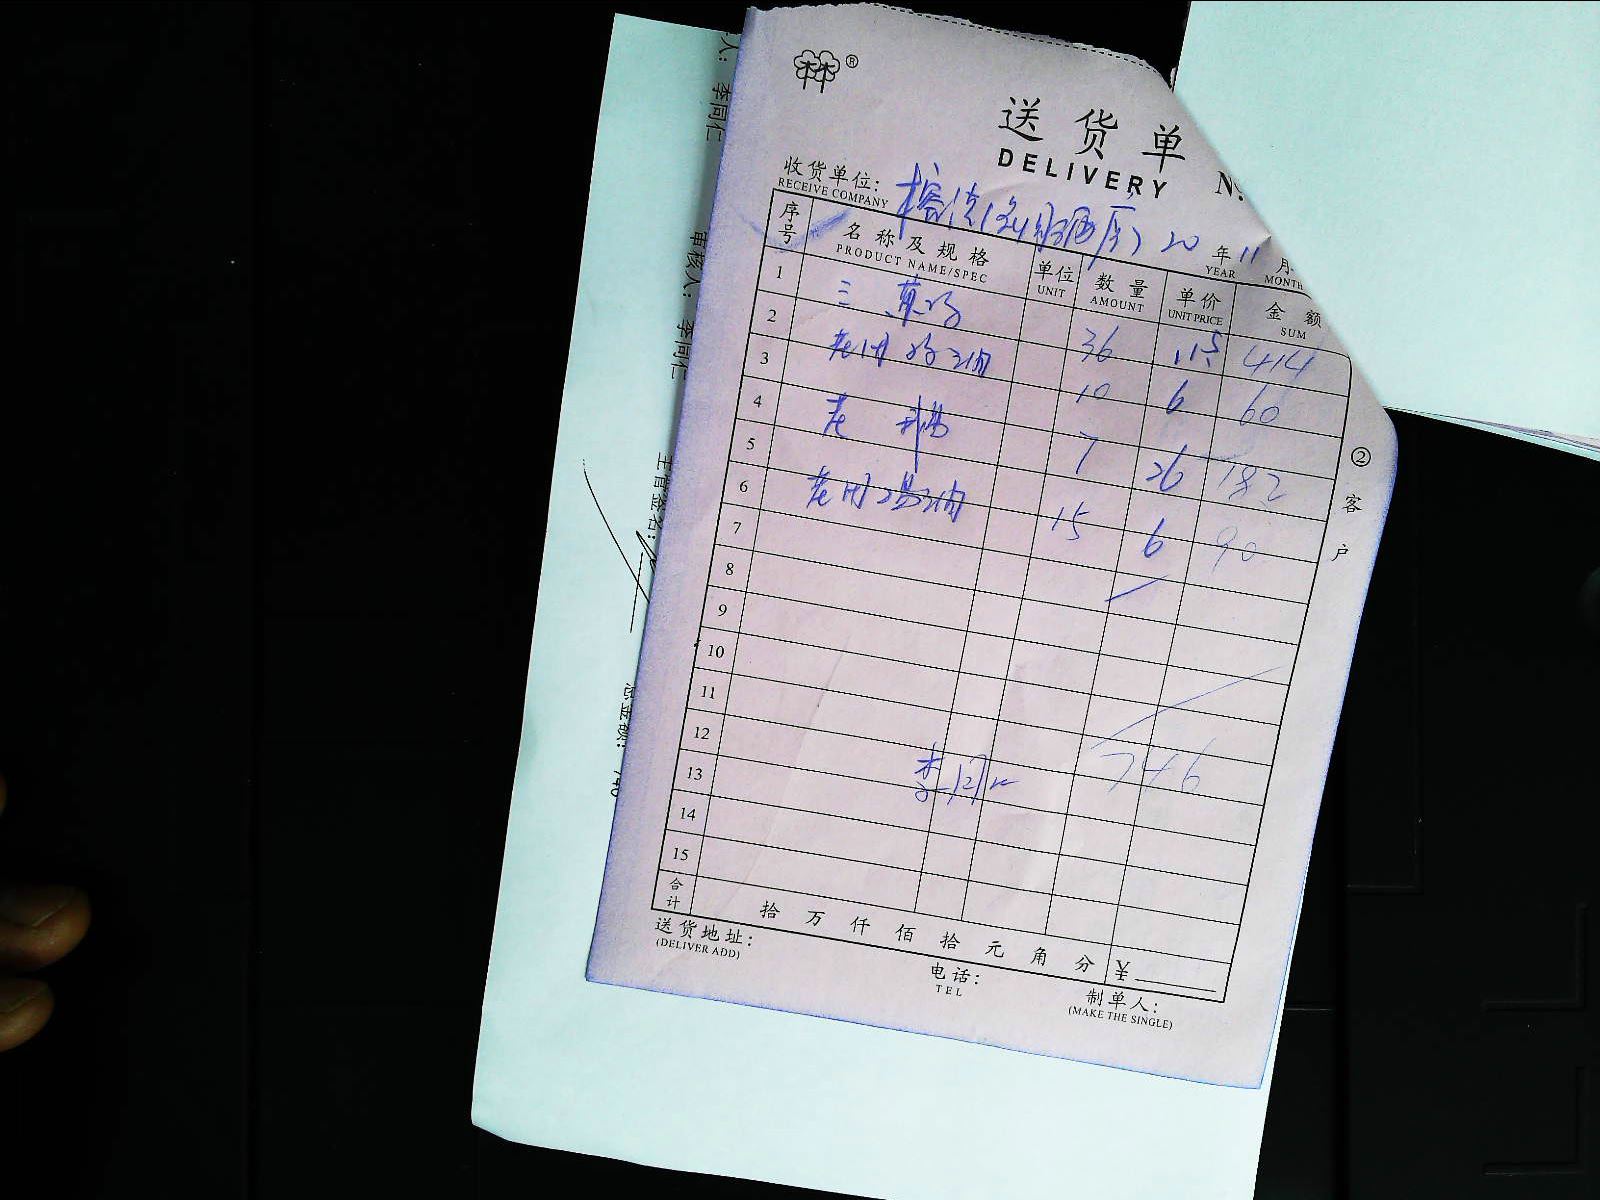 林®
送货单
DELIVERY
No.
收货单位:
RECEIVE COMPANY
20 年 11 月
YEAR MONTH
序号 名称及规格 单位 数量 单价 金额
PRODUCT NAME/SPEC UNIT AMOUNT UNIT PRICE SUM
1 三黄鸡 36 11.5 414
2
3 10 6 60
4 老 7 26 182
5
6 15 6 90
7
8
9
10
11
12 746
13 李同仁
14
15
合计 拾 万 仟 佰 拾 元 角 分 ¥
送货地址:
(DELIVER ADD)
电话:
TEL
制单人:
(MAKE THE SINGLE)
②客户
人: 李同仁
审核人: 李同仁
主管签名:
总金额: 746